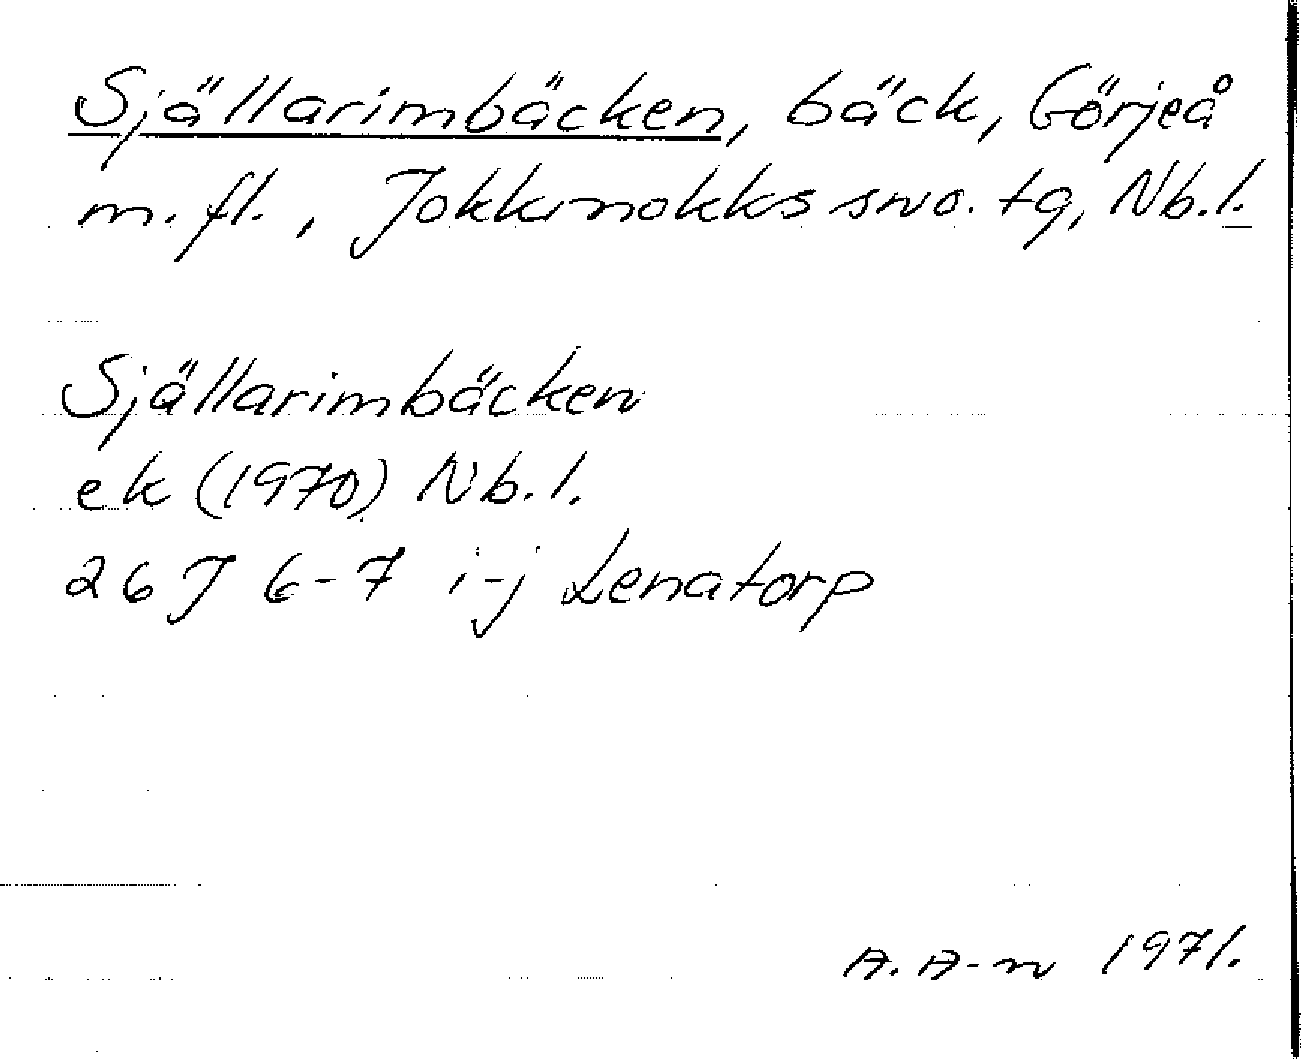 Själlarimbäcken, bäck, Görjeå
m. fl., Jokkmokks sno. tg, Nb.l.
Själlarimbäcken
ek (1970) Nb.l.
26 J 6-7 i-j Lenatorp
A. A-n 1971.